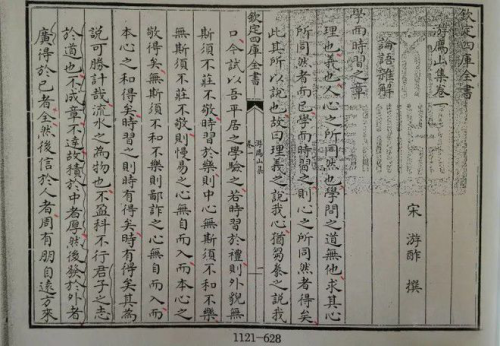 欽定四庫全書
游廌山集卷一
宋 游酢 撰
論語雜解
學而時習之章
理也義也人心之所同然也學問之道無他求其心
所同然者而已學而時習之則心之所同然者得矣
此其所以說也故曰理義之說我心猶芻豢之說我
欽定四庫全書
游廌山集
卷一
一
口今試以吾平居之學驗之若時習於禮則外貌無
斯須不莊不敬時習於樂則中心無斯須不和不樂
無斯須不莊不敬則慢易之心無自而入而本心之
敬得矣無斯須不和不樂則鄙詐之心無自而入而
本心之和得矣時習之則時有得矣時有得矣其為
說可勝計哉流水之為物也不盈科不行君子之志
於道也不成章不達故積於中者厚然後發於外者
廣得於己者全然後信於人者周有朋自遠方來
1121-628